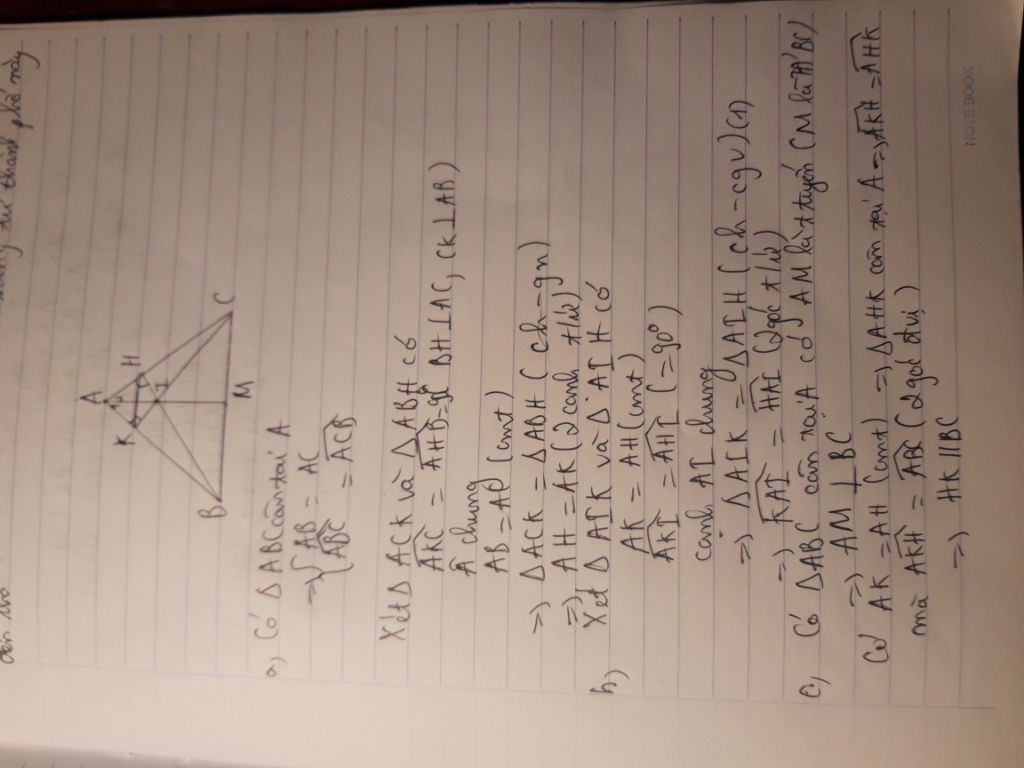 A
K
H
I
B
M
C
a, Có Δ ABC cân tại A
=> { AB = AC
ABC = ACB
Xét Δ ACK và Δ ABH có
AKC = AHB = 90° ( BH ⊥ AC, CK ⊥ AB )
A chung
AB = AC (cmt)
=> Δ ACK = Δ ABH ( ch - gn )
=> AH = AK ( 2 cạnh t/ư )
b, Xét Δ AIK và Δ AIH có
AK = AH (cmt)
AKI = AHI ( = 90° )
cạnh AI chung
=> Δ AIK = Δ AIH ( ch - cgv ) (1)
=> KAI = HAI ( 2 góc t/ư )
c, Có Δ ABC cân tại A có AM là t tuyến ( M là BC )
=> AM ⊥ BC
Có AK = AH (cmt) => Δ AHK cân tại A => AKH = AHK
mà AKH = AB ( 2 góc đvị )
=> HK // BC
NOTEBOOK